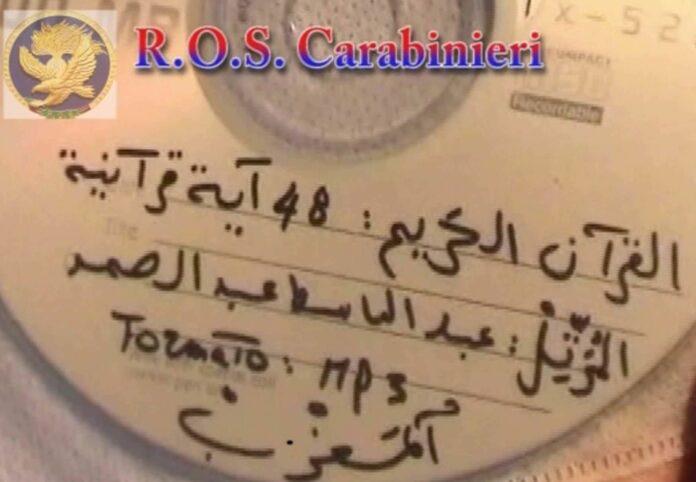 R.O.S. Carabinieri
x-52
COMPACT
Recordable
القرآن الكريم : 48 آية قرآنية
Title
المُرَتِّلْ : عبد الباسط عبد الصمد
Formato : MP3
اَلْمَغْرِبْ